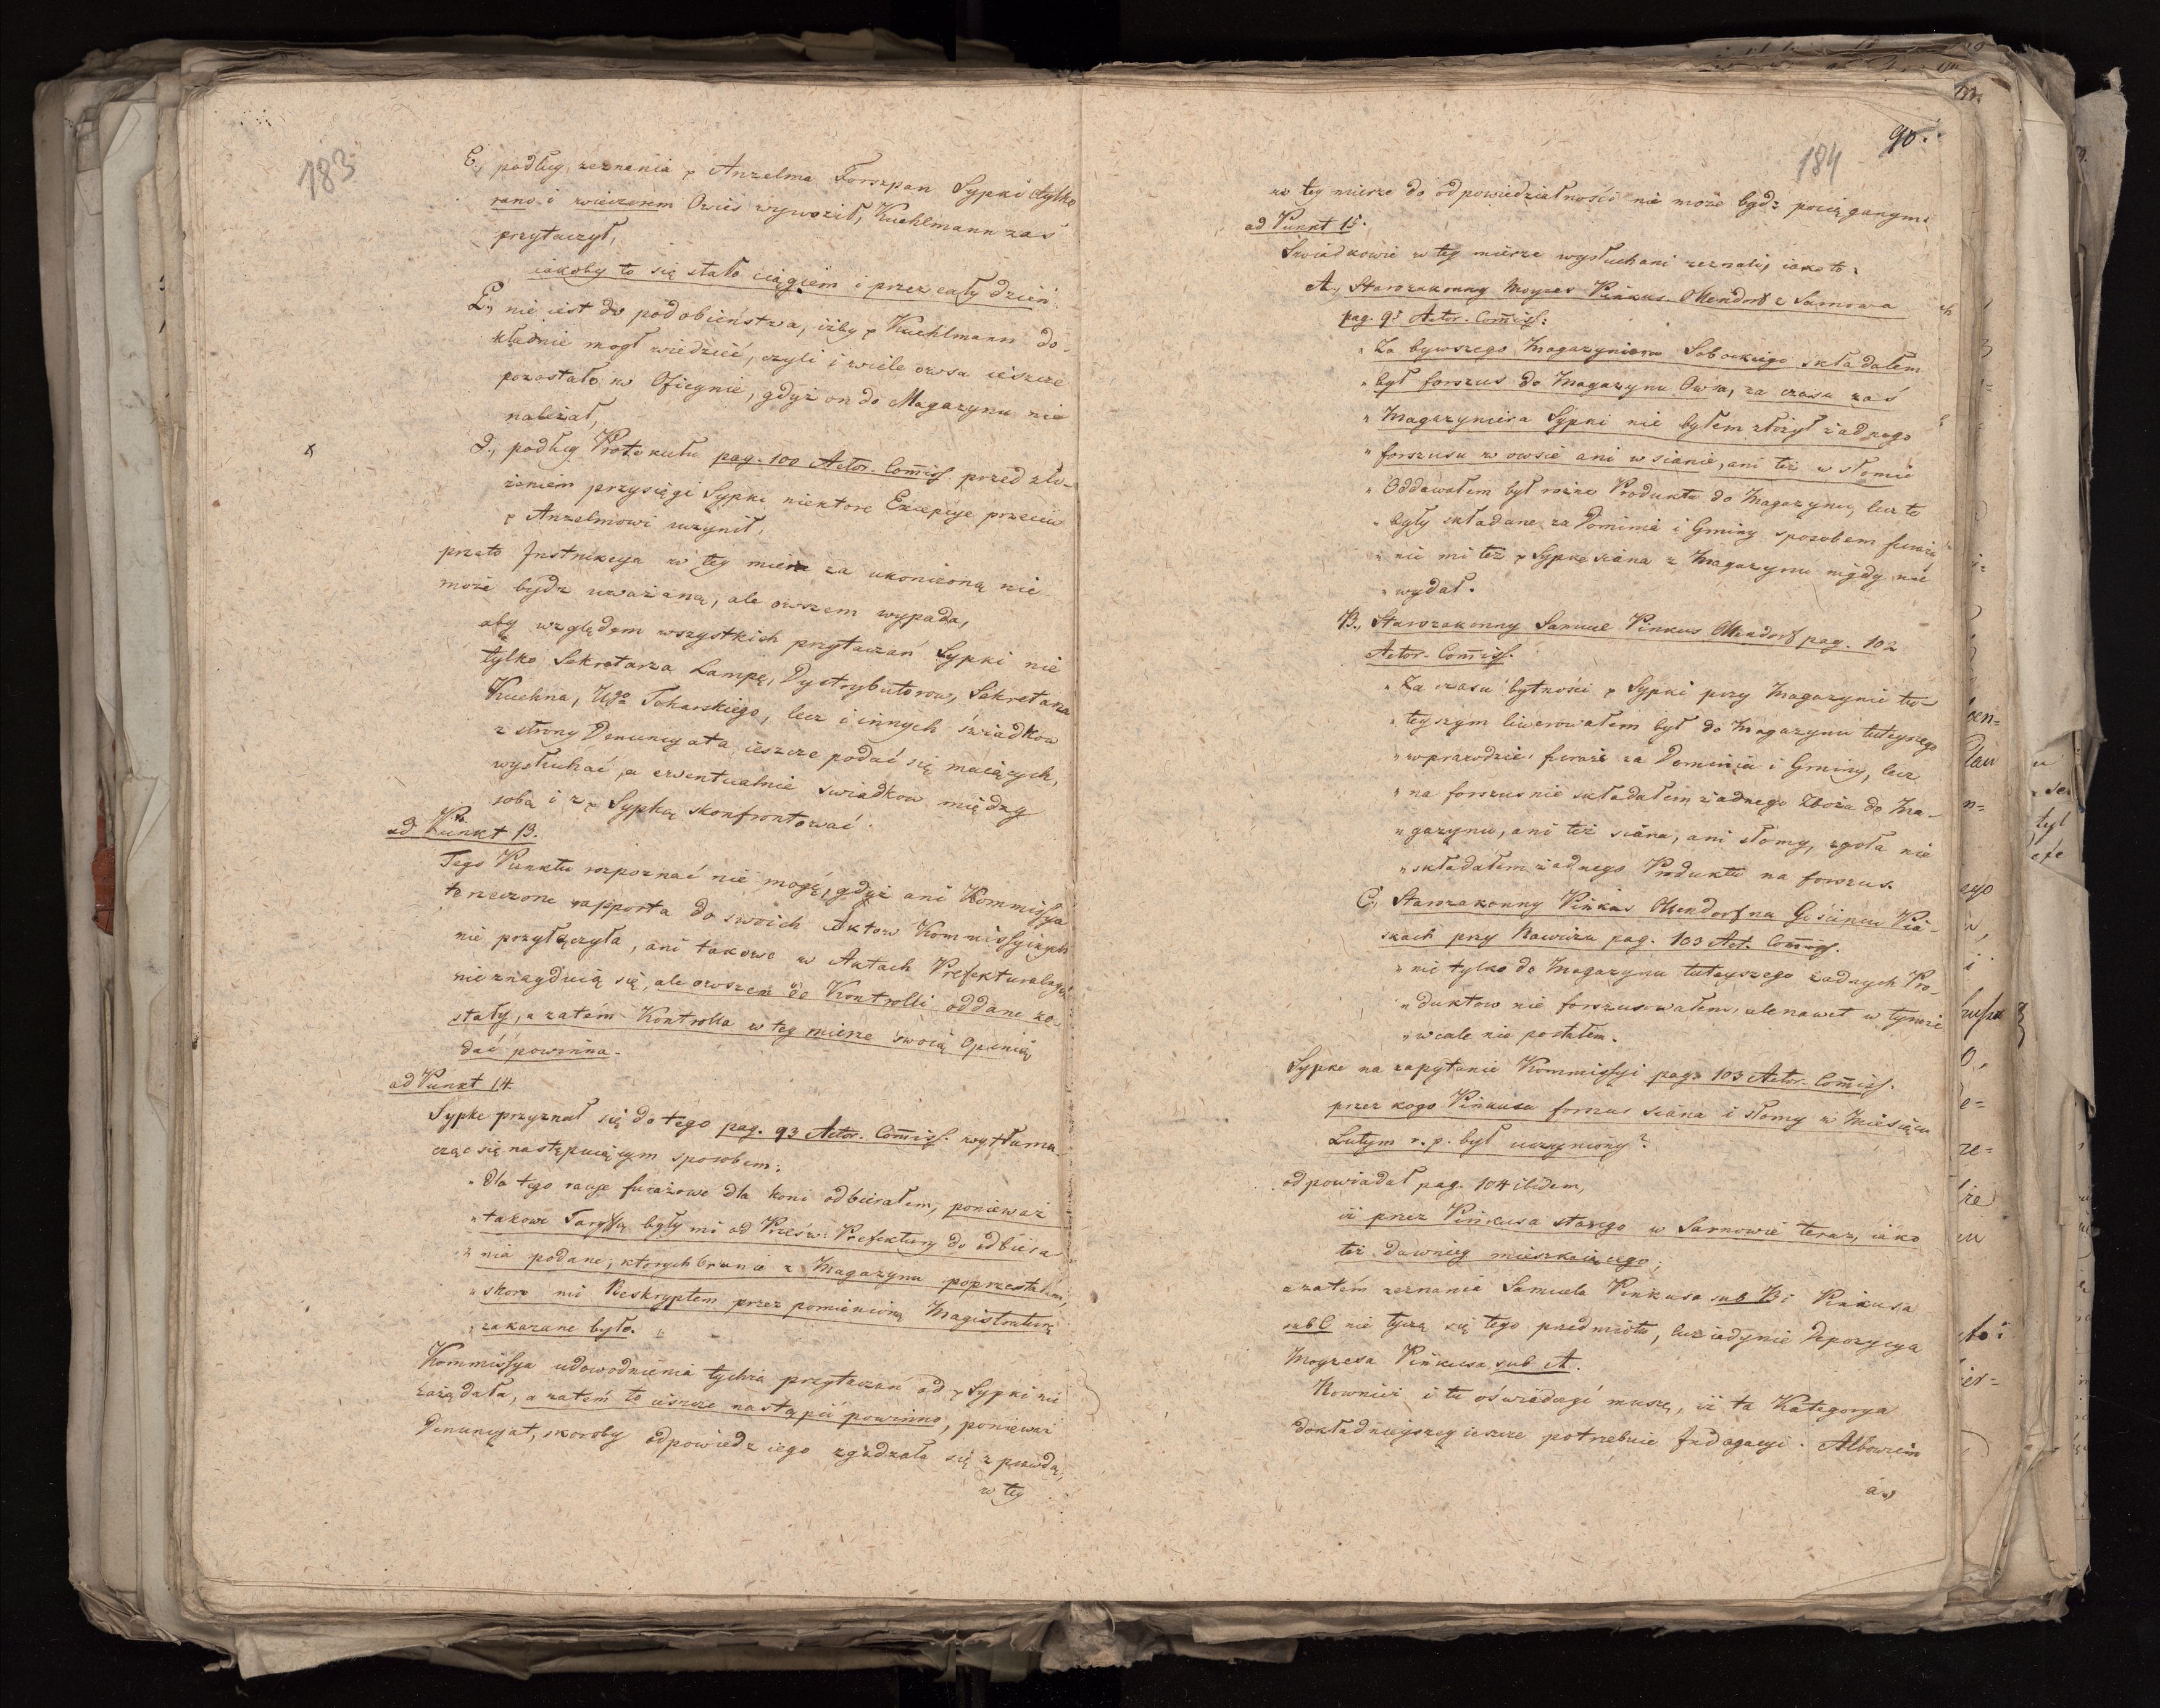 183
E., podług zeznania p Anzelma Forszpan Sypki tylko
rano i wieczorem Owies wywoził, Kuehlmann zaś
przytaczył,
iakoby to się stało ciągiem i przez cały dzień.
F., nie iest do podobieństwa, iżby p Kuehlmann do-
kładnie mogł wiedzieć, czyli i wiele owsa ieszcze
pozostało w Oficynie, gdyż on do Magazynu nie
należał,
x
G., podług Protokułu pag. 100 Actor. Com̄iss. przed zło-
żeniem przysięgi Sypke niektore Excepcye przeciw
p Anzelmowi uczynił,
przeto Instrukcya w tey mierze za ukończoną nie
może bydz uważaną, ale owszem wypada,
aby względem wszystkich przytaczań Sypki nie
tylko Sekretarza Lampę, Dystrybutorow, Sekretarza
Kuehna, Ugo Tokarskiego, lecz i innych świadkow
z strony Denuncyata ieszcze podać się maiących,
wysłuchać, a ewentualnie swiadkow między
sobą i z p Sypką skonfrontować.
ad Punkt 13.
Tego Punktu rozpoznać nie mogę, gdyż ani Kommissya
te rzeczone rapporta do swoich Aktow Kommissyinych
nie przyłączyła, ani takowe w Aktach Prefekturalnych
nie znayduią się, ale owszem do Kontrolli oddane zo-
stały, a zatém Kontrolla w tey mierze swoią Opinią
dać powinna.
ad Punkt 14.
Sypke przyznał się do tego pag. 93 Actor. Com̄iss. wytłuma-
cząc się następuiącym sposobem:
„ dla tego racye furażowe dla koni odbierałem, ponieważ
„ takowe Taryffą były mi od Prześw: Prefektury do odbiera-
„ nia podane, ktorych branie z Magazynu poprzestałem,
„ skoro mi Reskryptem przez pomienioną Magistraturę
„ zakazane było.
Kommissya udowodnienia tychże przytaczań od p Sypki nie
żądała, a zatém to ieszcze nastąpić powinno, ponieważ
Denuncyat, skoroby odpowiedz iego zgadzała się z prawdą,
w tey
184
90.
w tey mierze do odpowiedzialności nie może bydz pociąganym.
ad Punkt 15.
Swiadkowie w tey mierze wysłuchani zeznali, iako to:
A., Starozakonny Moyzes Pinkus Ollendorf z Sarnowa
pag. 95 Actor. Com̄iss:
„ Za bywszego Magazyniera Sobockiego składałem
„ był forszus do Magazynu Owsa, za czasu zaś
„ Magazyniera Sypki nie byłem złożył żadnego
„ forszusu w owsie ani w sianie, ani też w słomie
„ Oddawałem był rożne Produkta do Magazynu, lecz te
„ były składane za Dominia i Gminy sposobem furażu
„ nie mi też p Sypke siana z Magazynu nigdy nie
„ wydał.
B., Starozakonny Samuel Pinkus Ollendorf pag. 102
Actor. Com̄iss.
„ Za czasu bytności p Sypki przy Magazynie tu-
„ teyszym liwerowałem był do Magazynu tuteyszego
„ wprawdzie furaże za Dominia i Gminy, lecz
„ na forszus nie składałem żadnego Zboża do Ma-
„ gazynu, ani też siana, ani słomy, zgoła nie
„ składałem żadnego Produktu na forszus.
C., Starozakonny Pinkus Ollendorf na Gościncu Pia-
skach przy Rawiczu pag. 103 Act. Com̄iss.
„ nie tylko do Magazynu tuteyszego żadnych Pro-
„ duktow nie forszusowałem, ale nawet w tymże
„ wcale nie postałem.
Sypke na zapytanie Kommissyi pag. 103 Actor. Com̄iss.
przez kogo Pinkusa forszus siana i słomy w Miesiącu
Lutym r. p. był uczyniony?
odpowiadał pag. 104 ibidem,
iż przez Pinkusa starego w Sarnowie teraz, iako
też dawniey mieszkaiącego;
a zatém zeznania Samuela Pinkusa sub B i Pinkusa
sub C nie tyczą się tego przedmiotu, lecz iedynie Depozycya
Moyzesa Pinkusa sub A.
Rownież i tu oświadczyć muszę, iż ta Kategorya
dokładnieyszey ieszcze potrzebuie Indagacyi. Albowiem
a.,